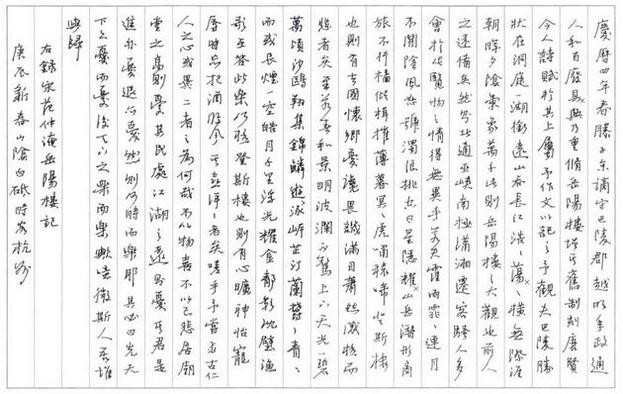 慶曆四年春滕子京謫守巴陵郡越明年政通
人和百廢具興乃重修岳陽樓增其舊制刻唐賢
今人詩賦於其上屬予作文以記之予觀夫巴陵勝
狀在洞庭一湖銜遠山吞長江浩〻蕩〻橫無際涯
朝暉夕陰氣象萬千此則岳陽樓之大觀也前人
之述備矣然則北通巫峽南極瀟湘遷客騷人多
會於此覽物之情得無異乎若夫霪雨霏〻連月
不開陰風怒號濁浪排空日星隱耀山岳潛形商
旅不行檣傾楫摧薄暮冥〻虎嘯猿啼登斯樓
也則有去國懷鄉憂讒畏譏滿目蕭然感極而
悲者矣至若春和景明波瀾不驚上下天光一碧
萬頃沙鷗翔集錦鱗游泳岸芷汀蘭鬱〻青〻
而或長煙一空皓月千里浮光耀金靜影沈璧漁
歌互答此樂何極登斯樓也則有心曠神怡寵
辱皆忘把酒臨風其喜洋〻者矣嗟乎予嘗求古仁
人之心或異二者之為何哉不以物喜不以己悲居廟
堂之高則憂其民處江湖之遠則憂其君是
進亦憂退亦憂然則何時而樂耶其必曰先天
下之憂而憂後天下之樂而樂歟噫微斯人吾誰
與歸
右錄宋范仲淹岳陽樓記
庚辰新春山陰白砥時客杭州